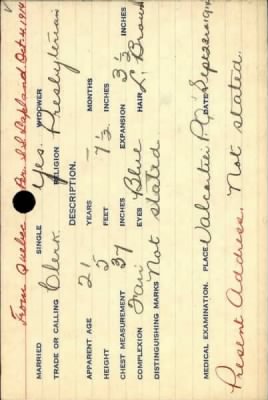 From Quebec Per. S.S. Lapland. Oct. 4. 1914
MARRIED SINGLE Yes. WIDOWER
TRADE OR CALLING Clerk. RELIGION Presbyterian
DESCRIPTION.
APPARENT AGE 21 YEARS — MONTHS
HEIGHT 5 FEET 7½ INCHES
CHEST MEASUREMENT 37 INCHES EXPANSION 3½ INCHES
COMPLEXION Fair EYES Blue HAIR L. Brown
DISTINGUISHING MARKS Not stated
MEDICAL EXAMINATION. PLACE Valcartier P.Q. DATE Sept 22nd 1914
Present Address. Not stated.